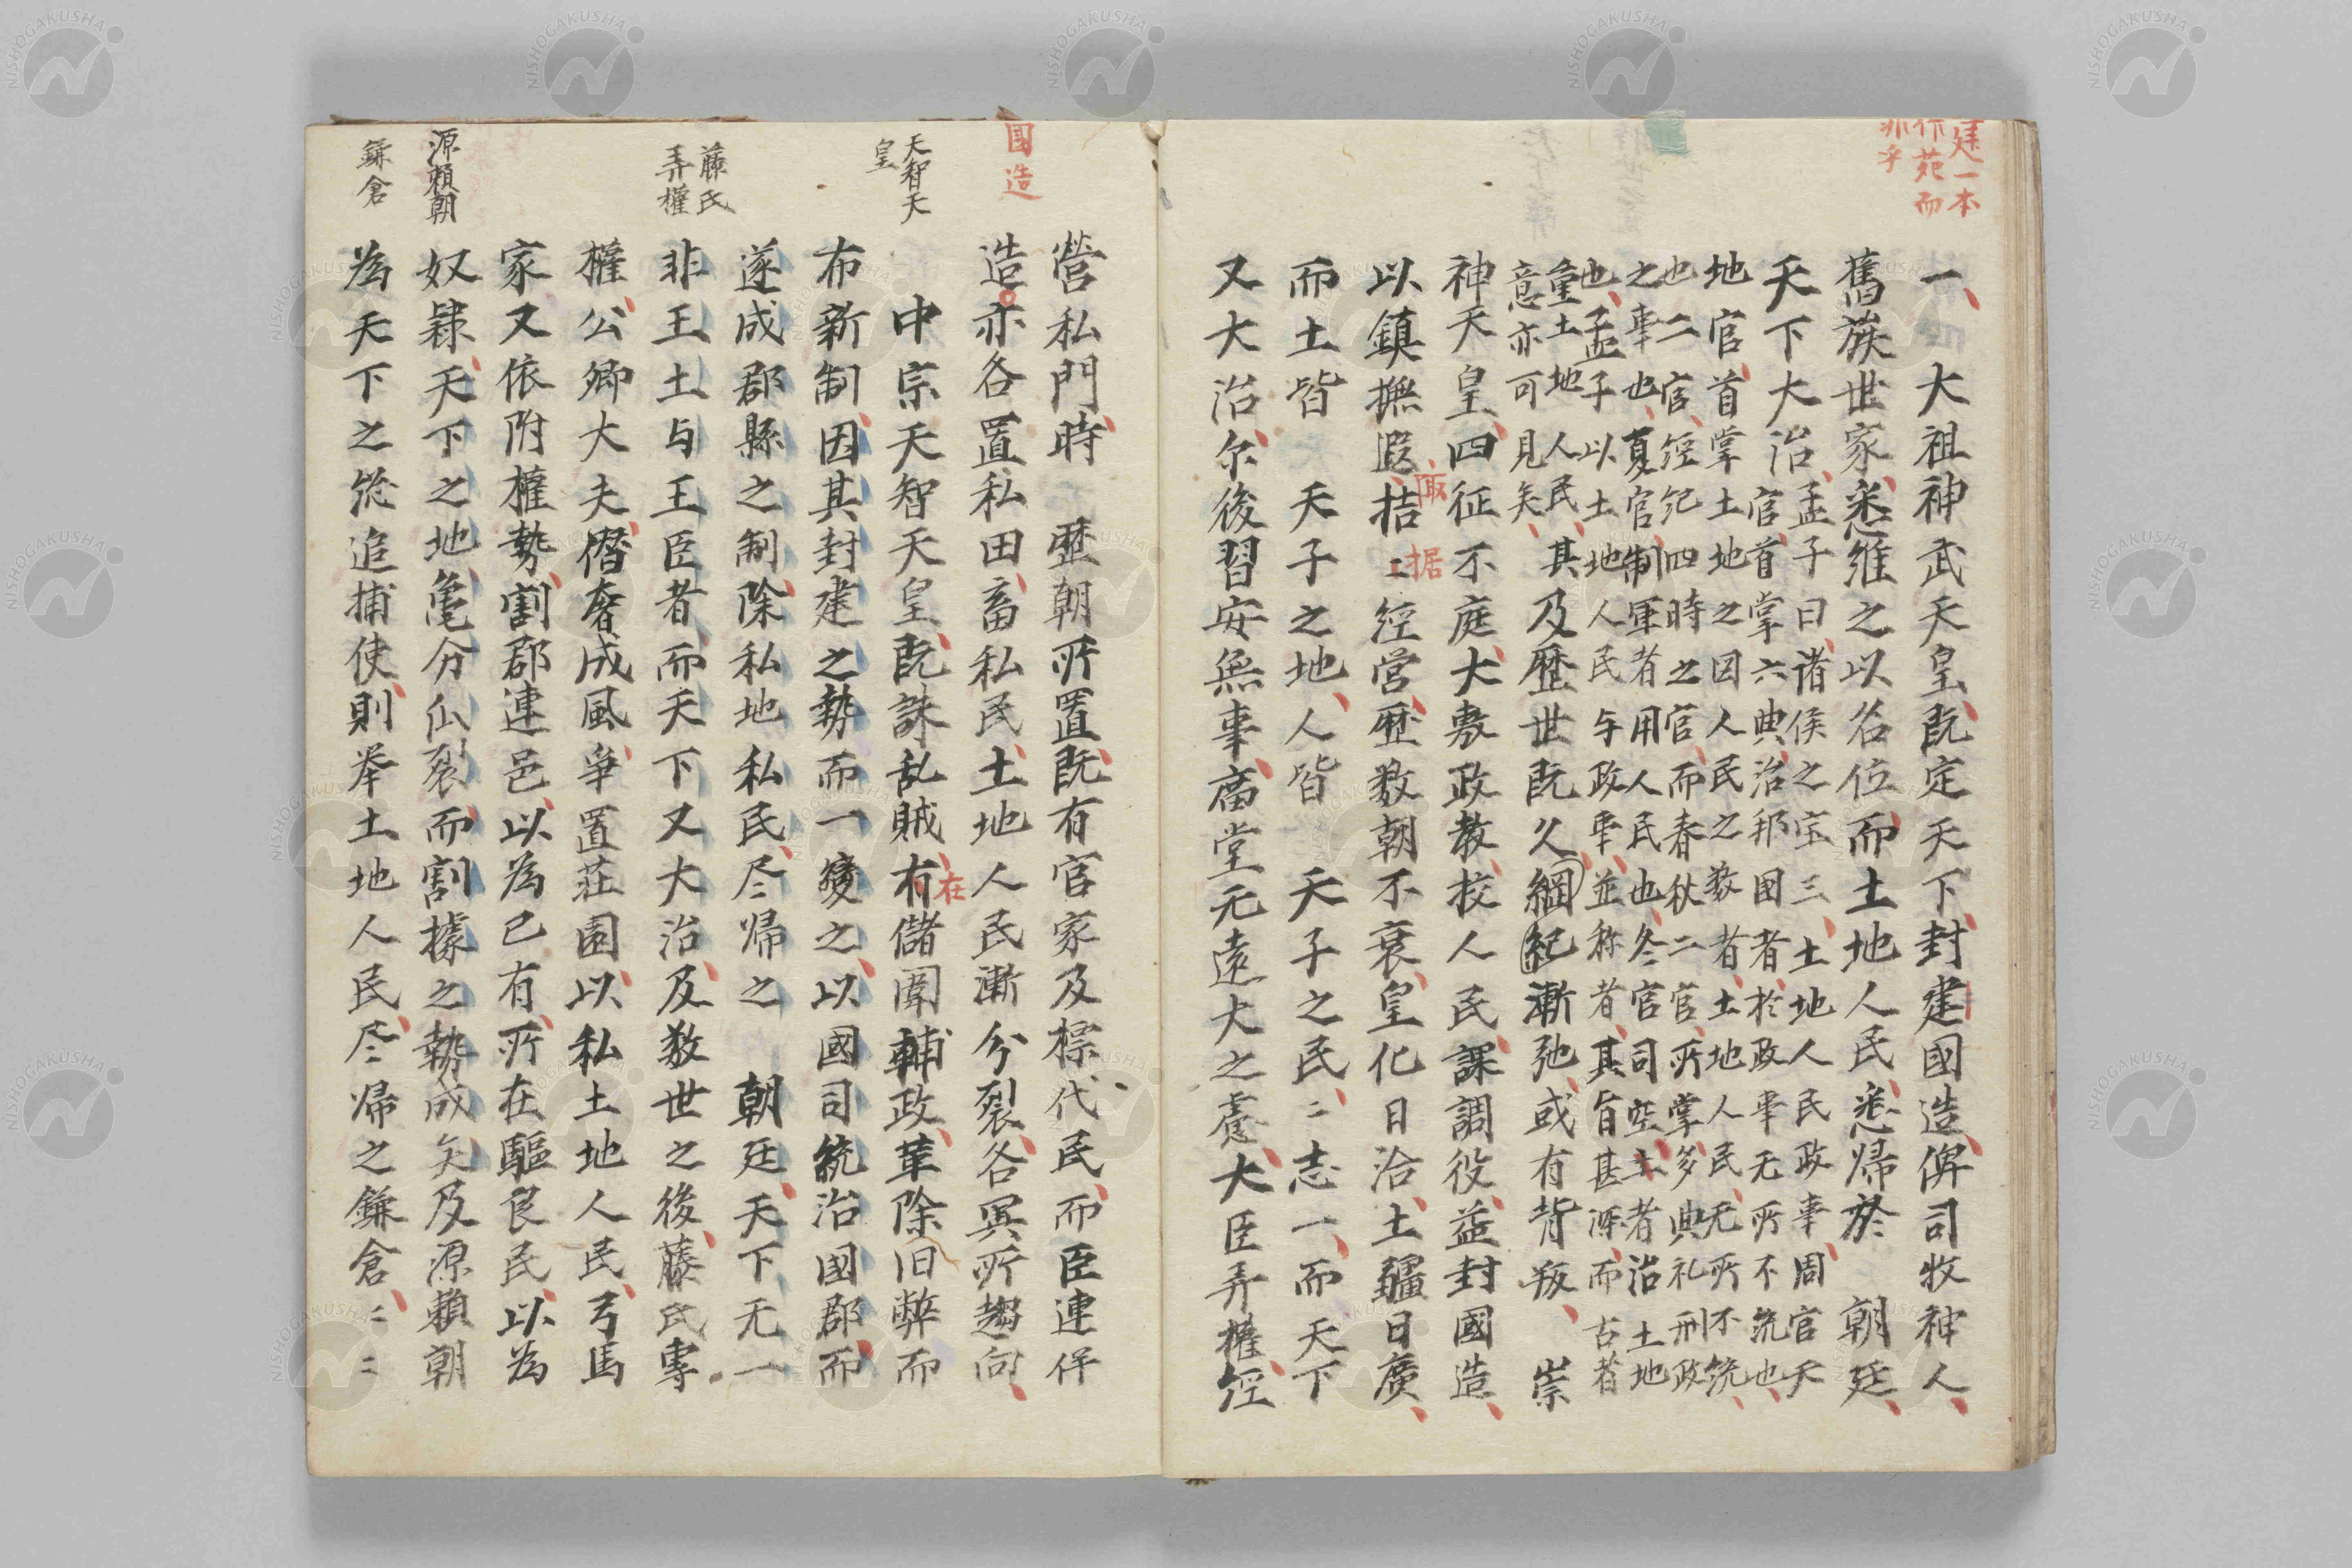 建一本
作苑而
非乎
一、大祖神武天皇、既定天下、封建國造、俾司牧神人、
舊族世家、悉維之以名位、而土地人民、悉帰於 朝廷、
天下大治、
孟子曰、諸侯之宝三、土地人民政事、周官天
官、首掌六典、治邦國者、於政事无所不统也、
地官、首掌土地之図人民之数者、土地人民、无所不统、
也二官、经纪四時之官、而春秋二官、所掌多典礼刑政
之事也、夏官制軍者、用人民也、冬官司空、主者治土地
也、孟子以土地人民与政事、並称者、其旨甚深、而古者
重土地人民、其
意亦可見矣、
及歴世既久綱紀漸弛、或有背叛、 崇
神天皇、四征不庭、大敷政教、挍人民、課調役、益封國造、
以鎮撫遐
陬
拮
据
〻経営、歴数朝不衰、皇化日洽、土疆日廣、
而土皆 天子之地、人皆 天子之民、〻志一、而天下
又大治、尓後習安無事、廟堂无遠大之慮、大臣弄權、经
國造
天智天
皇
藤氏
弄權
源頼朝
鎌倉
營私門、時 歴朝所置、既有官家及標代民、而臣連伴
造亦各置私田、畜私民、土地人民漸分裂、各異所趨向、
中宗天智天皇、既誅乱賊、
在
有儲闈輔政、革除旧弊而
布新制、因其封建之勢而一變之、以國司統治國郡、而
遂成郡縣之制、除私地私民、尽帰之 朝廷、天下无一
非王土与王臣者、而天下又大治、及数世之後、藤氏專
權、公卿大夫、僭奢成風、争置莊園、以私土地人民、弓馬
家又依附權勢、割郡連邑、以為己有、所在駆良民、以為
奴隷、天下之地、亀分瓜裂、而割據之勢成矣、及源頼朝
為天下之総追捕使、則挙土地人民、尽帰之鎌倉、〻〻